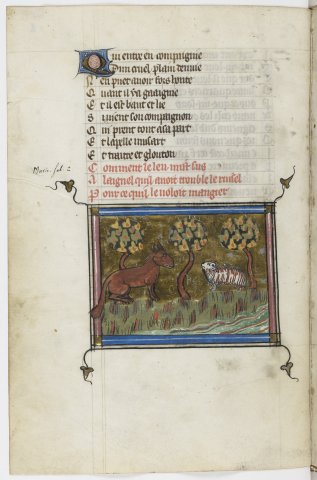 Qui entre en compaignie
Dun cruel plain denuie
Nen puet auoir fors honte
Quant il ua gaaigne
Et il est baut et lie
Si uient son compaignon
Qui prent tout a sa part
Et lapelle musart
Et traitre et glouton
Coument le leu mist sus
A laignel quil auoit trouble le ruisel
Pour ce quil le uoloit mangier